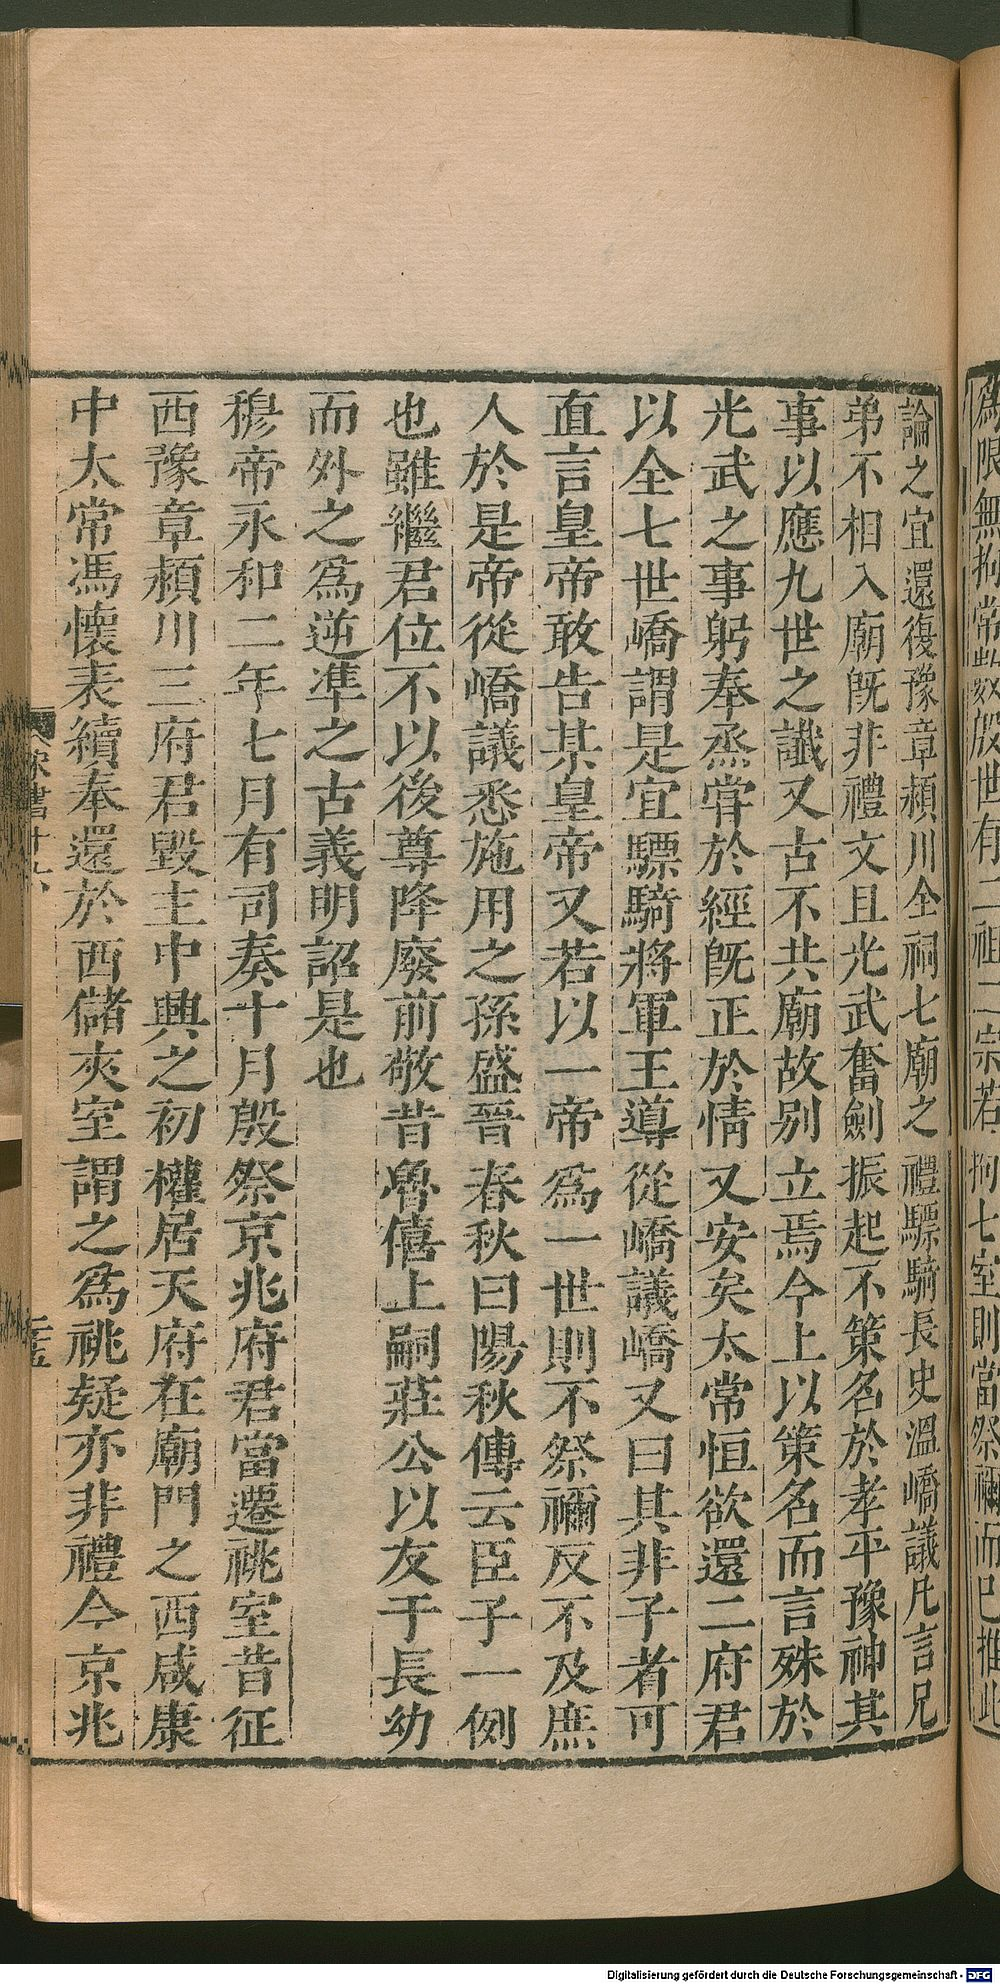 爲限無拘常數殷世有二祖二宗若拘七室則當祭禰而已推此
論之宜還復豫章頴川全祠七廟之禮驃騎長史溫嶠議凡言兄
弟不相入廟旣非禮文且光武奮劍振起不策名於孝平豫神其
事以應九世之讖又古不共廟故别立焉今上以策名而言殊於
光武之事躬奉烝甞於經旣正於情又安矣太常恒欲還二府君
以全七世嶠謂是宜驃騎將軍王導從嶠議嶠又曰其非子者可
直言皇帝敢告某皇帝又若以一帝爲一世則不祭禰反不及庶
人於是帝從嶠議悉施用之孫盛晉春秋曰陽秋傳云臣子一例
也雖繼君位不以後尊降廢前敬昔魯僖上嗣莊公以友于長幼
而外之爲逆準之古義明詔是也
穆帝永和二年七月有司奏十月殷祭京兆府君當遷祧室昔征
西豫章頴川三府君毀主中興之初權居天府在廟門之西咸康
中太常馮懷表續奉還於西儲夾室謂之爲祧疑亦非禮今京兆
宋書十六
二五
Digitalisierung gefördert durch die Deutsche Forschungsgemeinschaft - DFG